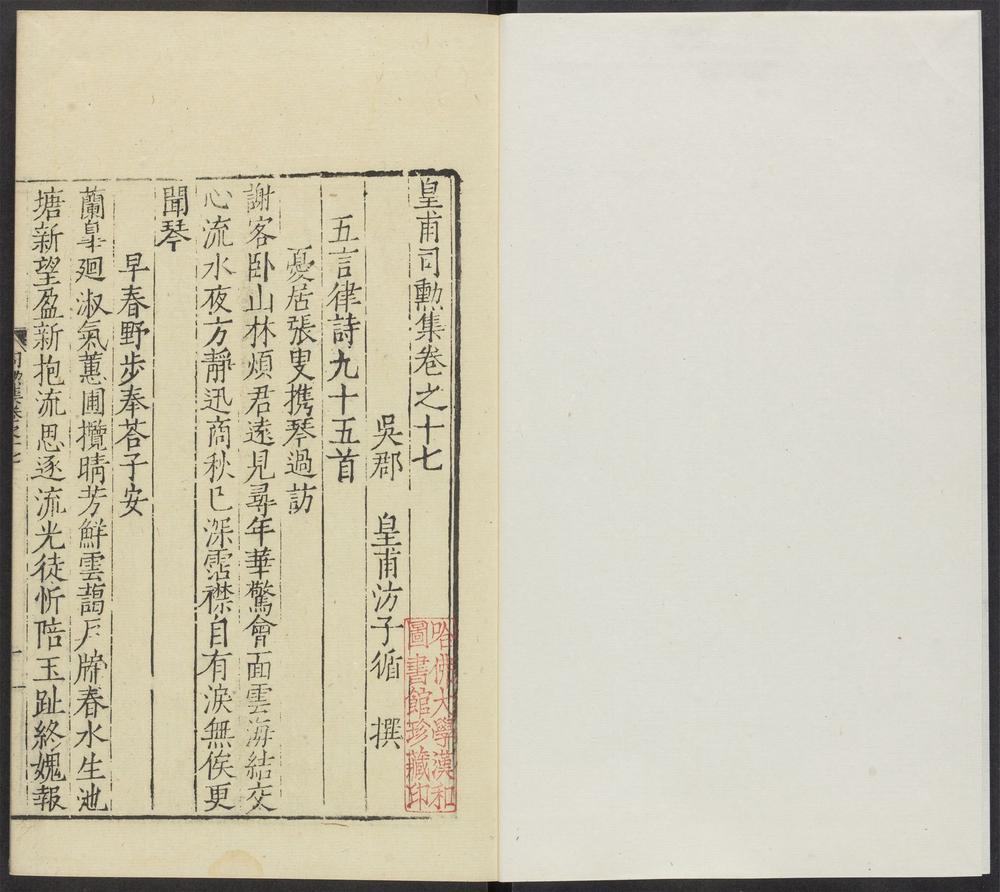 皇甫司勲集卷之十七
吳郡 皇甫汸子循 撰
五言律詩九十五首
憂居張叟携琴過訪
謝客卧山林煩君遠見尋年華驚會面雲海結交
心流水夜方靜迅商秋已深霑襟自有淚無俟更
聞琴
早春野步奉荅子安
蘭皐廻淑氣蕙圃攬晴芳鮮雲藹户牖春水生池
塘新望盈新抱流思逐流光徒忻陪玉趾終媿報
司勲集卷之十七
一
哈佛大學漢和
圖書館珍藏印